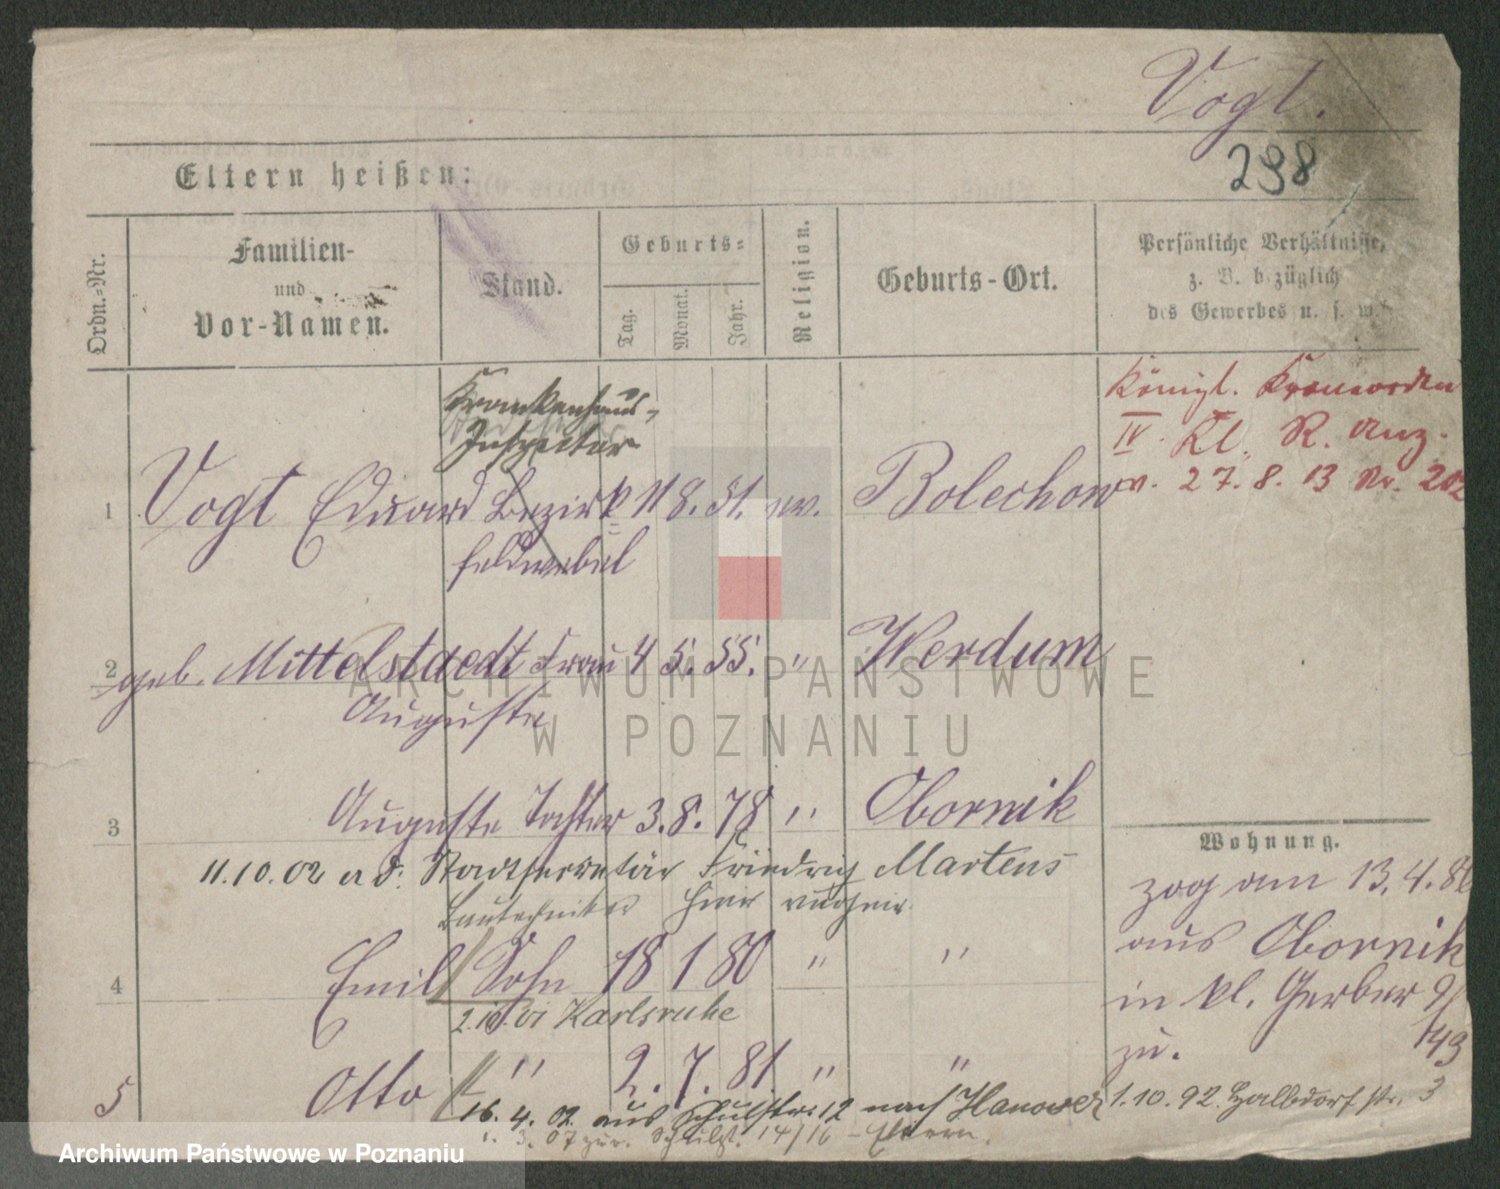 Vogt.
298
Eltern heißen:
Ordn.-Nr.
Familien-
und
Vor-Namen.
Stand.
Geburts-
Tag.
Monat.
Jahr.
Religion.
Geburts-Ort.
Persönliche Verhältnisse,
z. B. bezüglich
des Gewerbes u. s. w.
Königl. Kronorden
IV. Kl. R. Anz.
v. 27. 8. 13 Nr. 202
Krankenhaus-
Inspector
1 Vogt Eduard Bezirk= 11 8. 51. ev. Bolechow
feldwebel
2 geb. Mittelstaedt Frau 4 5. 55. " Werdum
Auguste
3 Auguste Tochter 3. 8. 78 " Obornik
11.10.02 a. d. Stadtsecretär Friedrich Martens
Bautechniker hier
4 Emil Sohn 18 1 80 " "
2.10.01 Karlsruhe
5 Otto " 2. 7. 81 " "
16. 4. 02 aus Schulstr. 12 nach Hanover
1. 3. 07 zur. Schulst. 14/16 - Eltern.
Wohnung.
zog am 13. 4. 86
aus Obornik
in kl. Gerber 9/
zu. 143
1.10.92 Halbdorfstr. 3
ARCHIWUM PAŃSTWOWE
W POZNANIU
Archiwum Państwowe w Poznaniu